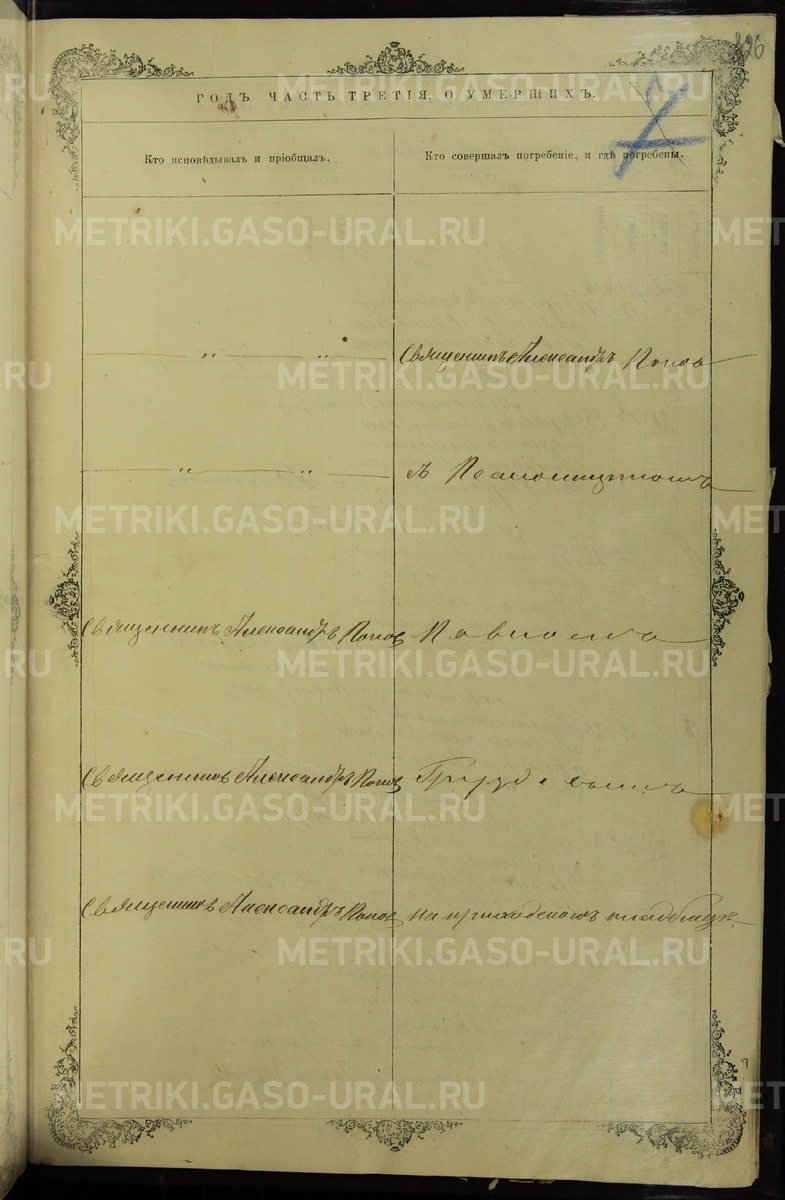 826
ГОДЪ ЧАСТЬ ТРЕТІЯ, О УМЕРШИХЪ.
Кто исповѣдывалъ и пріобщалъ.
Кто совершалъ погребеніе, и гдѣ погребены.
" "
Священникъ Александръ Попов
" "
съ Псаломщикомъ
Священникъ Александръ Попов
Священникъ Александръ Попов
Священникъ Александръ Попов
на приходскомъ кладбищѣ
METRIKI.GASO-URAL.RU
METRIKI.GASO-URAL.RU
METRIKI.GASO-URAL.RU
METRIKI.GASO-URAL.RU
METRIKI.GASO-URAL.RU
METRIKI.GASO-URAL.RU
METRIKI.GASO-URAL.RU
METRIKI.GASO-URAL.RU